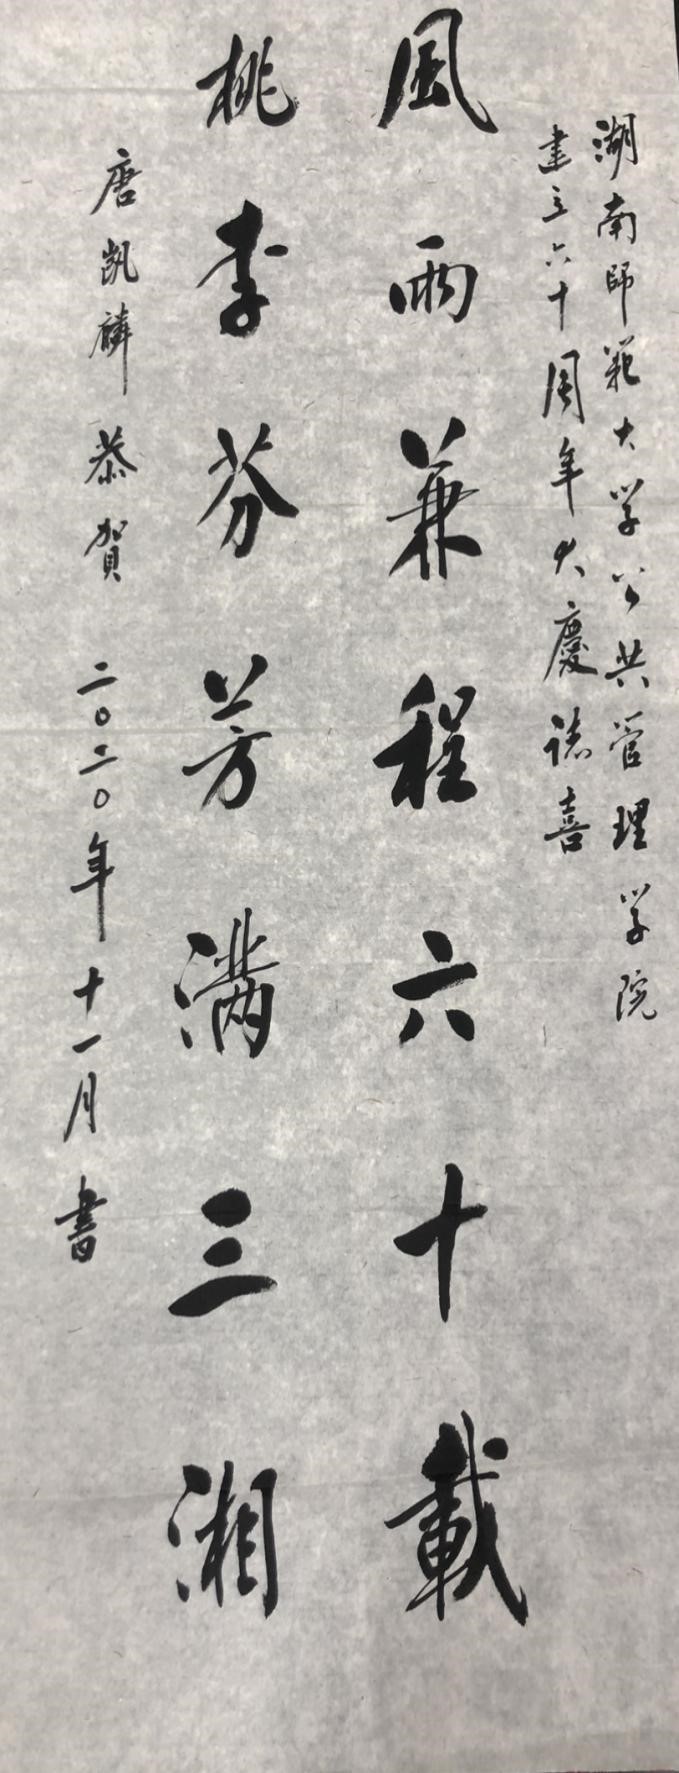 湖南師範大学公共管理学院
建立六十周年大慶誌喜
風雨兼程六十載
桃李芬芳满三湘
唐凯麟恭賀 二〇二〇年十一月書